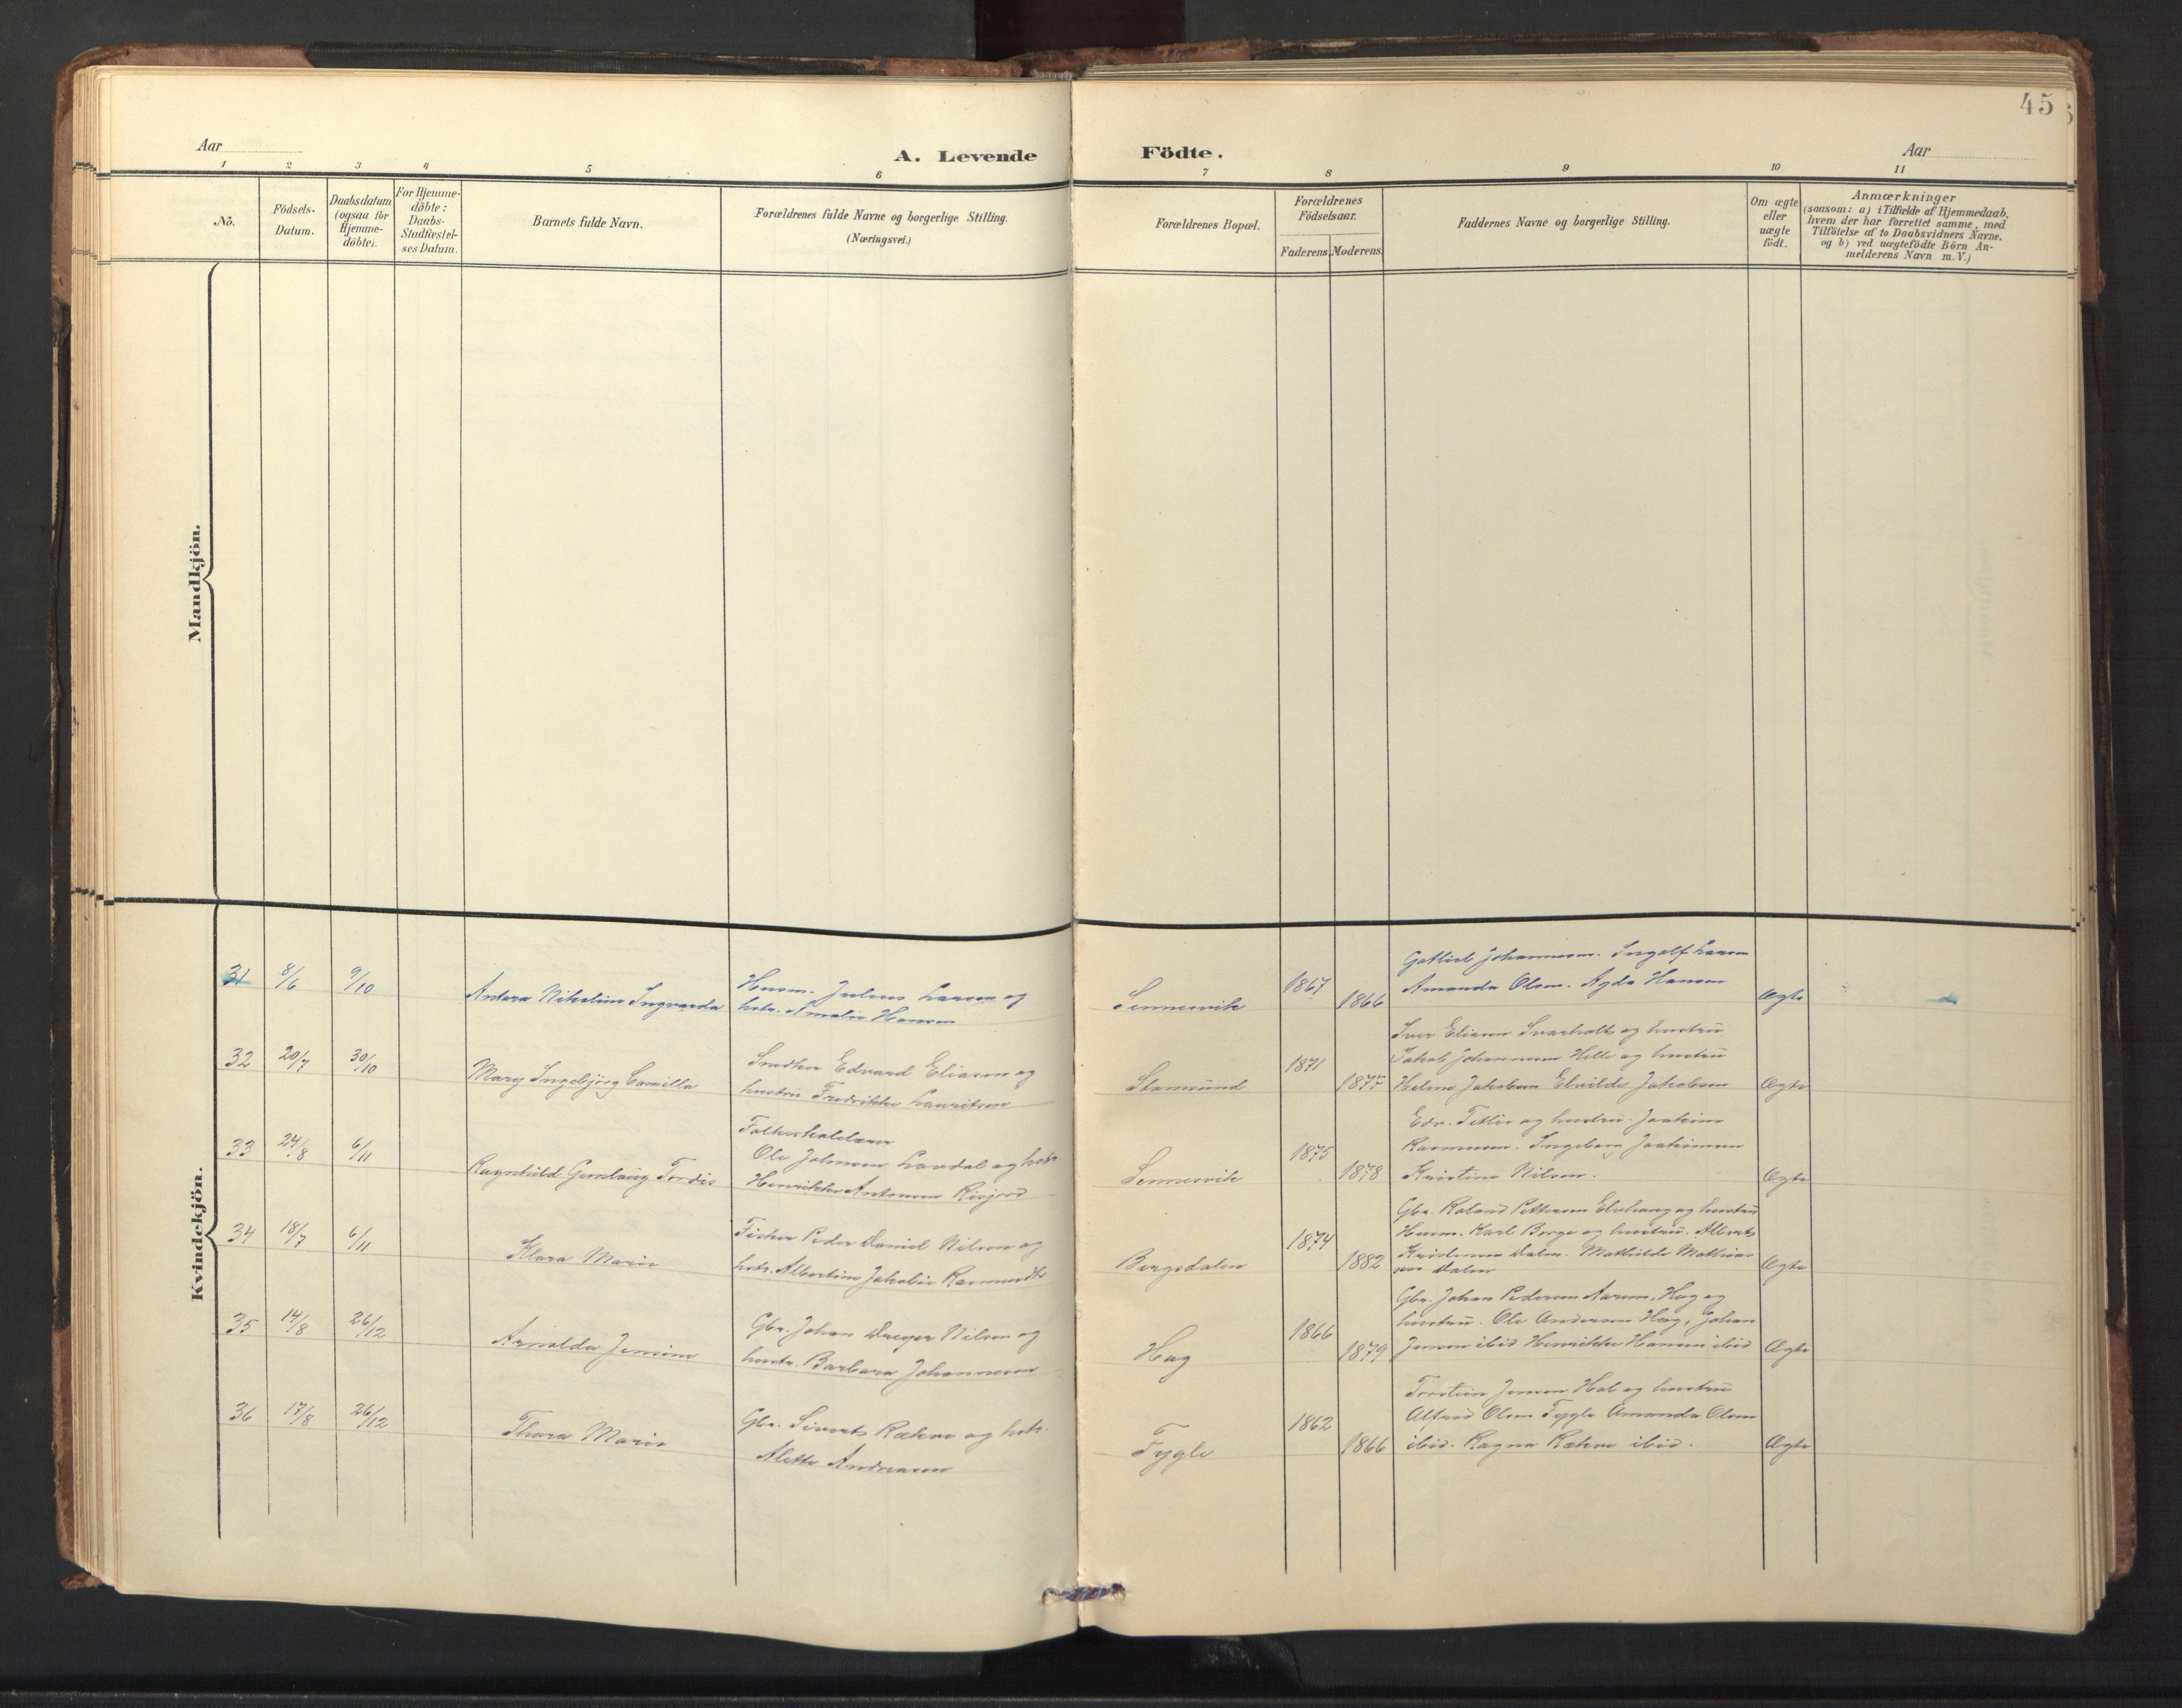 45
Aar
A. Levende Födte.
Aar
1 2 3 4 5 6 7 8 9 10 11
No.
Födsels-
Datum.
Daabsdatum
(ogsaa for
Hjemme-
döbte).
For Hjemme-
döbte:
Daabs-
Stadfæstel-
ses Datum.
Barnets fulde Navn.
Forældrenes fulde Navne og borgerlige Stilling.
(Næringsvei.)
Forældrenes Bopæl.
Forældrenes
Födselsaar.
Faderens. Moderens.
Faddernes Navne og borgerlige Stilling.
Om ægte
eller
uægte
födt.
Anmærkninger
(saasom: a) i Tilfælde af Hjemmedaab,
hvem der har forrettet samme, med
Tilföielse af to Daabsvidners Navne,
og b) ved uægtefödte Börn An-
melderens Navn m.V.)
Mandkjön.
Kvindekjön.
31 8/6 9/10
Antora Nikoline Ingvarda
Husm. Julius Larsen og
hstr. Amalie Hansen
Sennesvik
1867
1866
Gotlieb Johannesen. Ingolf Larsen
Amanda Olsen. Agda Hansen
Ægte
32 20/7 30/10
Mary Ingebjörg Camilla
Snedker Edvard Eliasen og
hustru Fredrikke Lauritsen
Stamsund
1871
1877
Iver Eliasen Svarholt og hustru
Jakob Johannesen Helle og hustru
Helene Jakobsen Elvilde Jakobsen
Ægte
33 24/8 6/11
Ragnhild Gunlaug Tordis
Folkeskolelærer
Ole Johnsen Lavdal og hstr
Henrikke Antonsen Risjord
Sennesvik
1875
1878
Edv. Tetlie og hustru. Joakim
Rasmussen. Ingeborg Joakimsen
Kristine Nilsen.
Ægte
34 18/7 6/11
Klara Marie
Fisker Peder Daniel Nilsen og
hstr. Albertine Jakobie
Borgsdalen
1874
1882
Gbr. Roland Pettersen og hustru
Husm. Karl Borge og hustru. Alberts
Kristensen Dalen. Mathilde Mathias
sen Dalen
Ægte
35 14/8 26/12
Arnolda Jensine
Gbr. Johan Dreyer Nilsen og
hustr. Barbara Johannesen
Hag
1866
1879
Gbr. Johan Pedersen Hag og
hustru. Ole Andersen Hag, Johan
Jensen ibid Henrikke Hansen ibid
Ægte
36 17/8 26/12
Thora Marie
Gbr. Siverts Rækve og hstr.
Alette Andreasen
Fygle
1862
1866
Torstein Jensen Hol og hustru
Alfred Olsen Fygle Amanda Olsen
ibid. Ragna Rækve ibid.
Ægte